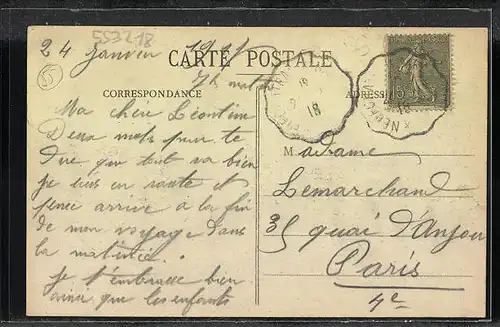 553218
24 Janvier 1918
7h matin
CARTE POSTALE
CORRESPONDANCE
ADRESSE
Ma chère Léontine
Deux mots pour te
dire que tout va bien
je suis en route et
pense arrivé à la fin
de mon voyage dans
la matinée.
Je t'embrasse bien
ainsi que les enfants
Madame
Lemarchand
35 quai d'Anjou
Paris
4e
18
18
15